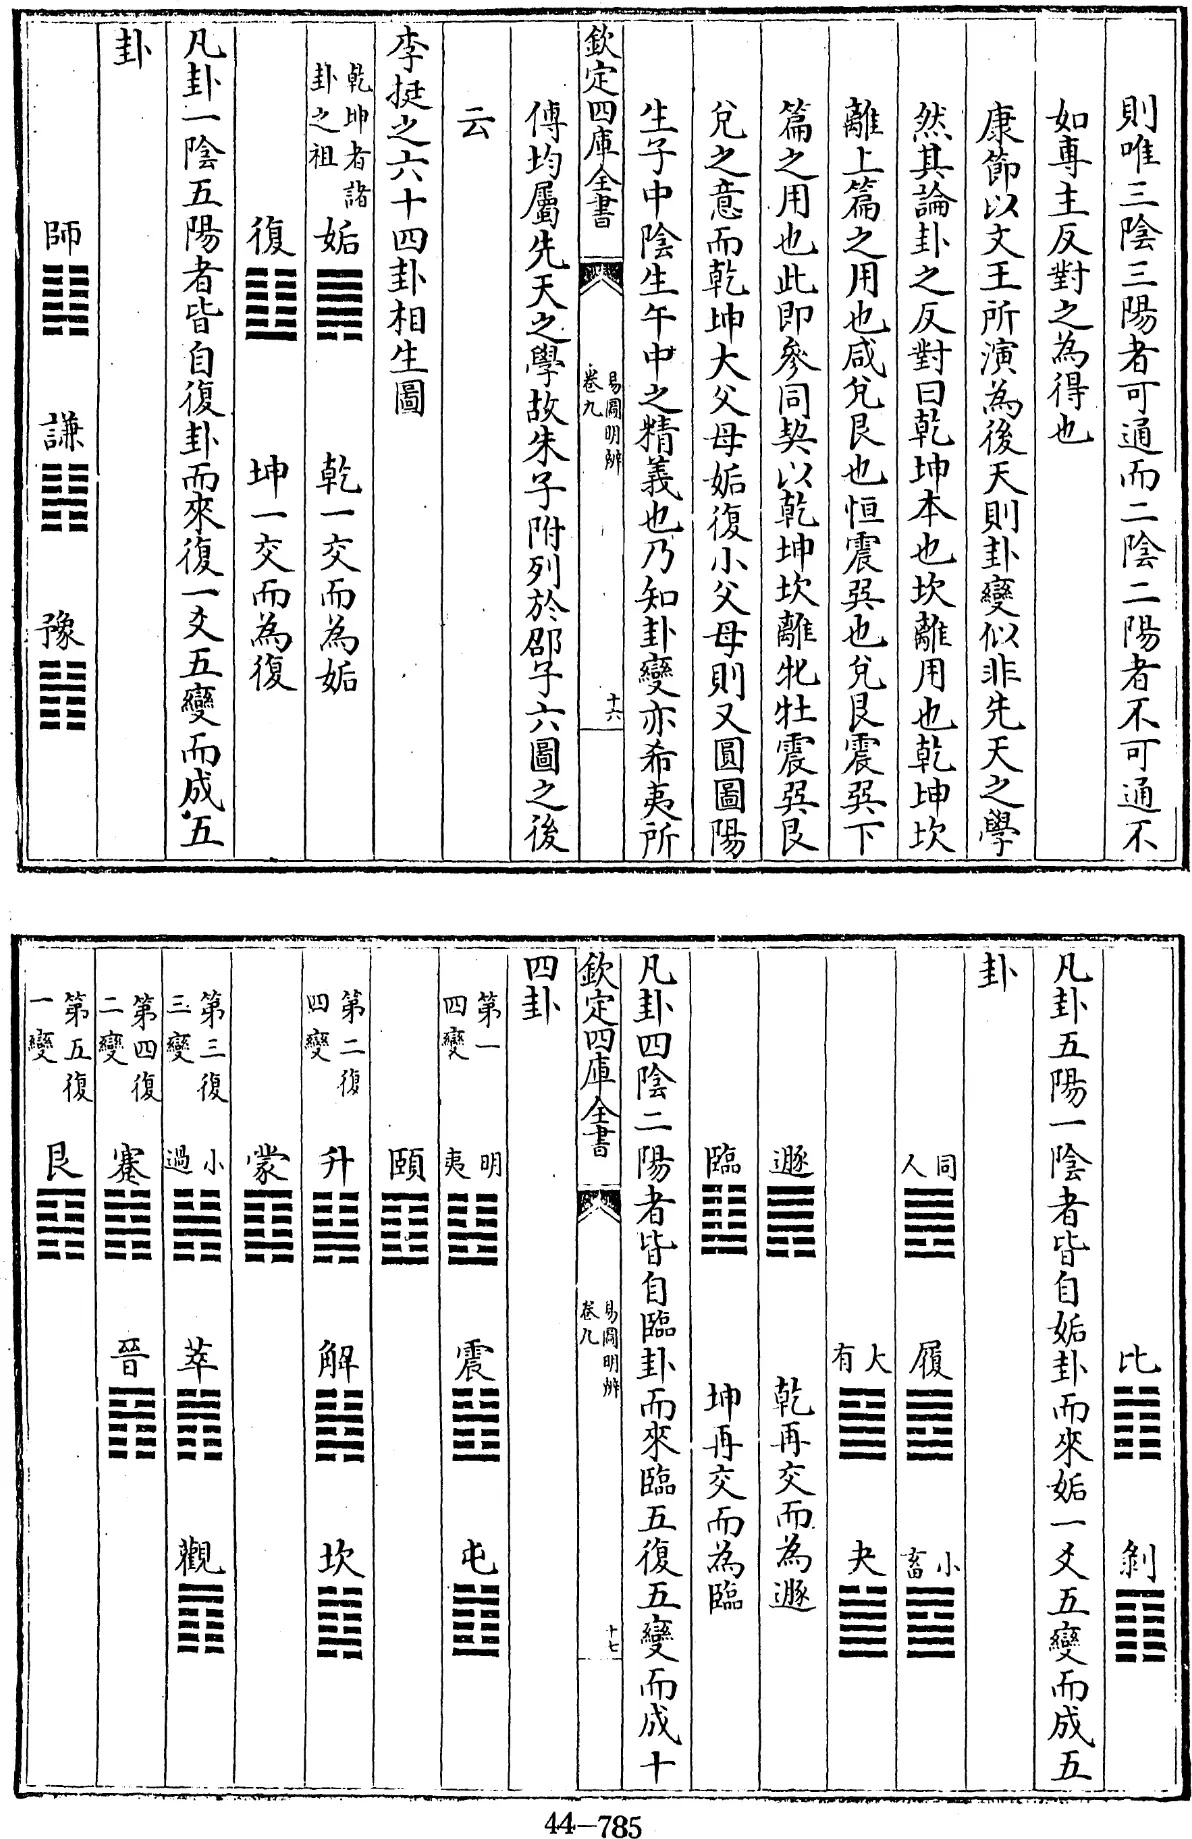 則唯三陰三陽者可通而二陰二陽者不可通不
如專主反對之為得也
康節以文王所演為後天則卦變似非先天之學
然其論卦之反對曰乾坤本也坎離用也乾坤坎
離上篇之用也咸兌艮也恒震巽也兌艮震巽下
篇之用也此即參同契以乾坤坎離牝牡震巽艮
兌之意而乾坤大父母姤復小父母則又圓圖陽
生子中陰生午中之精義也乃知卦變亦希夷所
欽定四庫全書 易圖明辨 卷九 十六
傳均屬先天之學故朱子附列於邵子六圖之後
云
李挺之六十四卦相生圖
乾坤者諸卦之祖 姤 乾一交而為姤
復 坤一交而為復
凡卦一陰五陽者皆自復卦而來復一爻五變而成五
卦
師 謙 豫
比 剝
凡卦五陽一陰者皆自姤卦而來姤一爻五變而成五
卦
同人 履 小畜
大有 夬
遯 乾再交而為遯
臨 坤再交而為臨
凡卦四陰二陽者皆自臨卦而來臨五復五變而成十
欽定四庫全書 易圖明辨 卷九 十七
四卦
第一四變 明夷 震 屯
頤
第二復四變 升 解 坎
蒙
第三復三變 小過 萃 觀
第四復二變 蹇 晉
第五復一變 艮
44-785